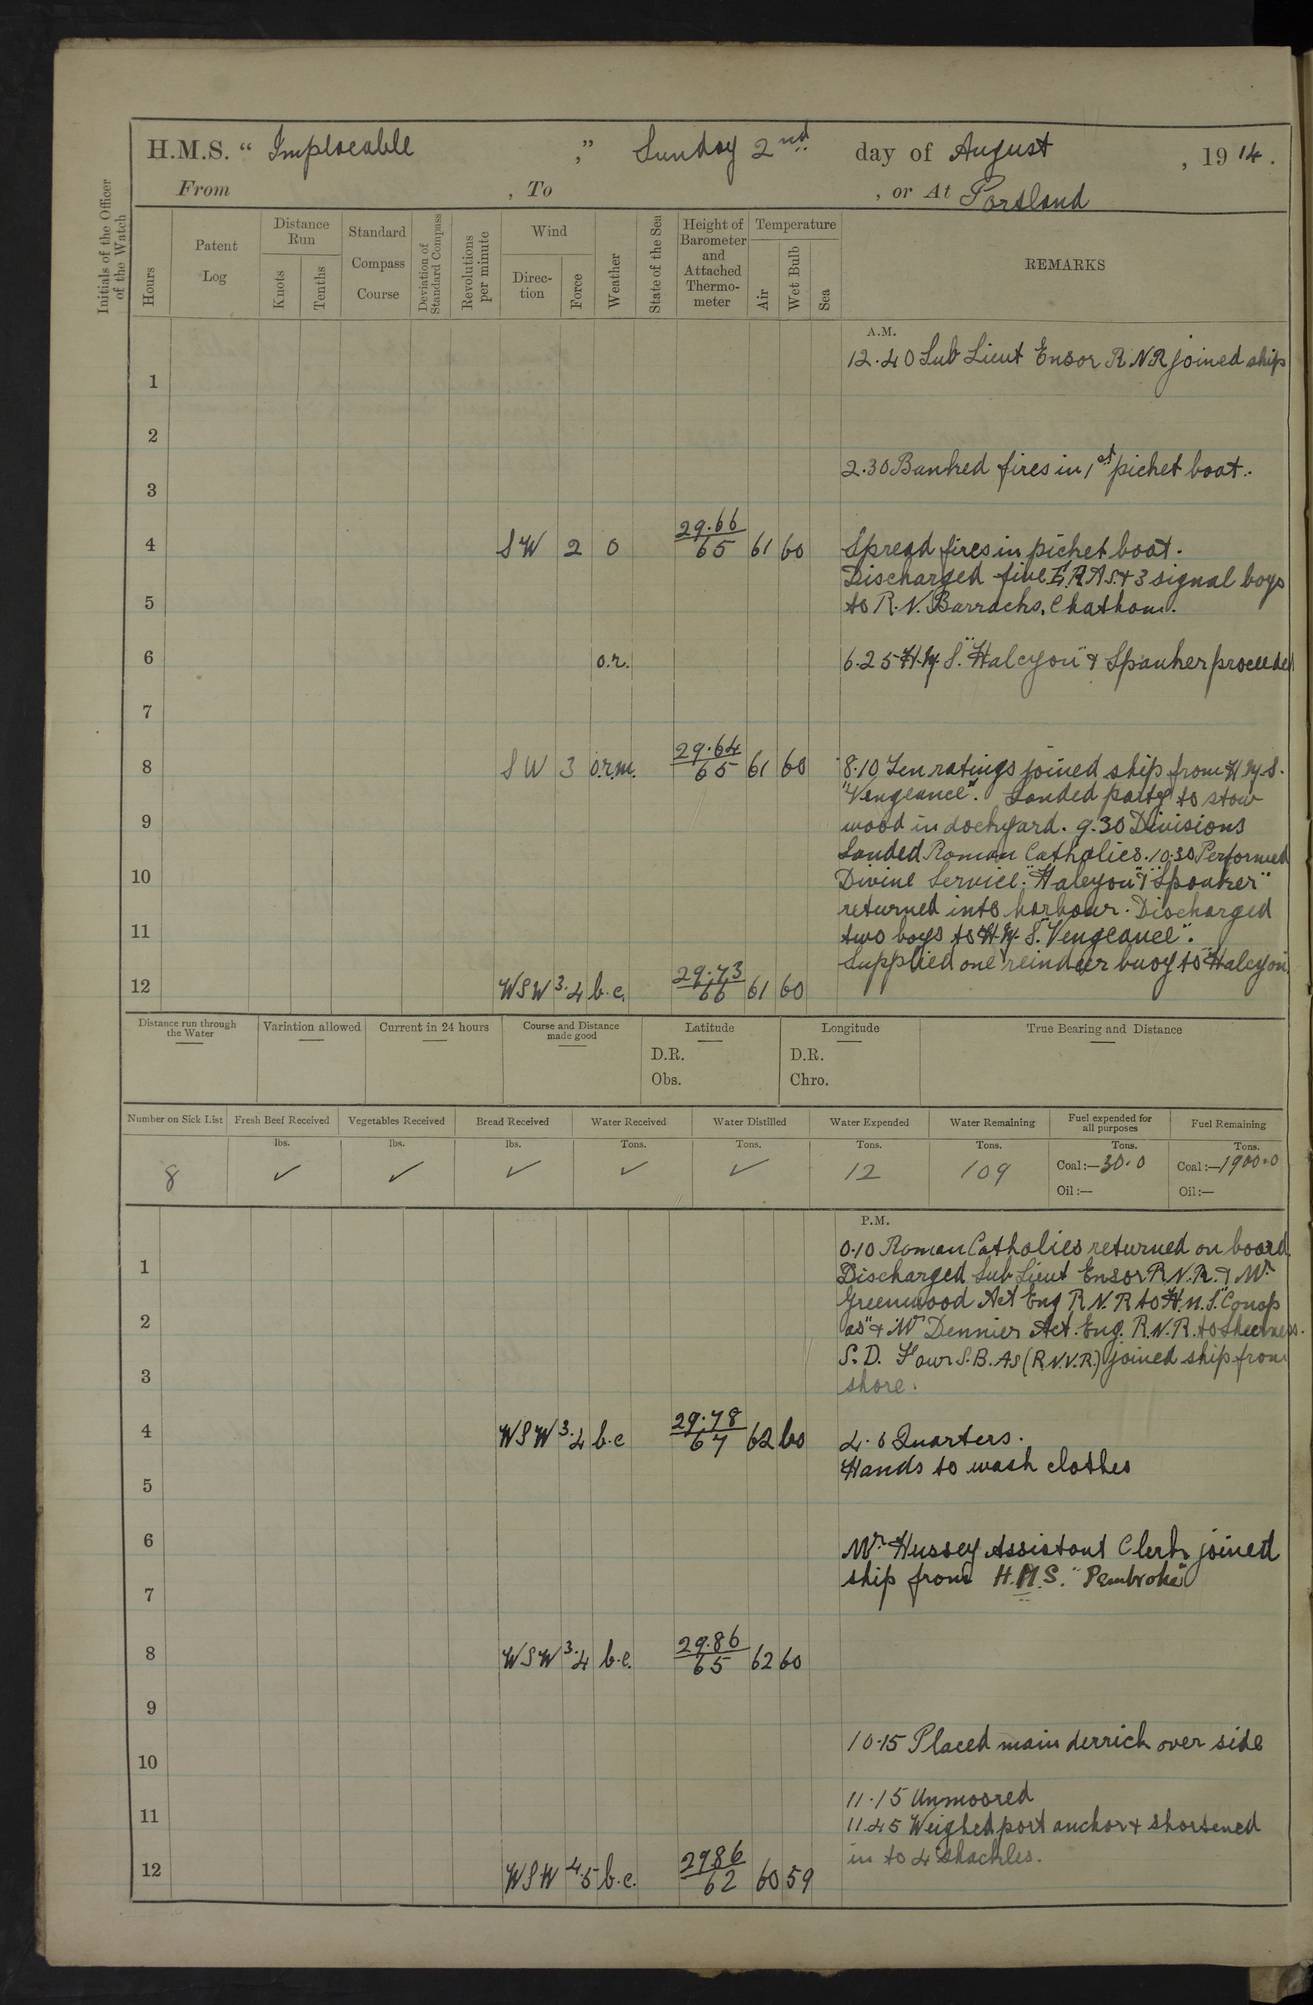 H.M.S. “ Implacable ,” Sunday 2nd day of August , 19 14.
From , To , or At Portland
Initials of the Officer of the Watch
Hours
Patent Log
Distance Run
Knots
Tenths
Standard Compass Course
Deviation of Standard Compass
Revolutions per minute
Wind
Direc-tion
Force
Weather
State of the Sea
Height of Barometer and Attached Thermo-meter
Temperature
Air
Wet Bulb
Sea
REMARKS
A.M.
12.40 Sub Lieut Ensor R N R joined ship
1
2
2.30 Banked fires in 1st picket boat.
3
4 SW 2 o 29.66/65 61 60 Spread fires in picket boat.
Discharged five E.R.As. & 3 signal boys
5 to R.N. Barracks, Chatham.
6 o.r. 6.25 H.M.S. "Halcyon" & Spanker proceeded
7
8 SW 3 o.r.m. 29.64/65 61 60 8.10 Ten ratings joined ship from H.M.S.
"Vengeance". Landed party to stow
9 wood in dockyard. 9.30 Divisions
Landed Roman Catholics. 10.30 Performed
10 Divine Service. "Halcyon" & "Spanker"
returned into harbour. Discharged
11 two boys to H.M.S. "Vengeance".
Supplied one reindeer buoy to "Halcyon
12 WSW 3.4 b.c. 29.73/66 61 60
Distance run through the Water
Variation allowed
Current in 24 hours
Course and Distance made good
Latitude
D.R.
Obs.
Longitude
D.R.
Chro.
True Bearing and Distance
Number on Sick List
Fresh Beef Received
Vegetables Received
Bread Received
Water Received
Water Distilled
Water Expended
Water Remaining
Fuel expended for all purposes
Fuel Remaining
lbs. lbs. lbs. Tons. Tons. Tons. Tons. Tons. Tons.
8 ✓ ✓ ✓ ✓ ✓ 12 109 Coal :— 30.0 Coal :— 1900.0
Oil :— Oil :—
P.M.
0.10 Roman Catholics returned on board.
1 Discharged Sub Lieut Ensor R.N.R. & Mr
Greenwood Act Eng R.N.R to H.M.S. "Conop
2 as" & Mr Dennier Act. Eng. R.N.R. to Sheerness.
3 S.D. Four S.B.As (R.N.V.R.) joined ship from
shore.
4 WSW 3.4 b.c 29.78/67 62 60 4.0 Quarters.
Hands to wash clothes
5
6 Mr Hussey Assistant Clerk joined
7 ship from H.M.S. "Pembroke"
8 WSW 3.4 b.c. 29.86/65 62 60
9
10.15 Placed main derrick over side
10
11.15 Unmoored
11 11.45 Weighed port anchor & shortened
in to 4 shackles.
12 WSW 4.5 b.c. 2986/62 60 59